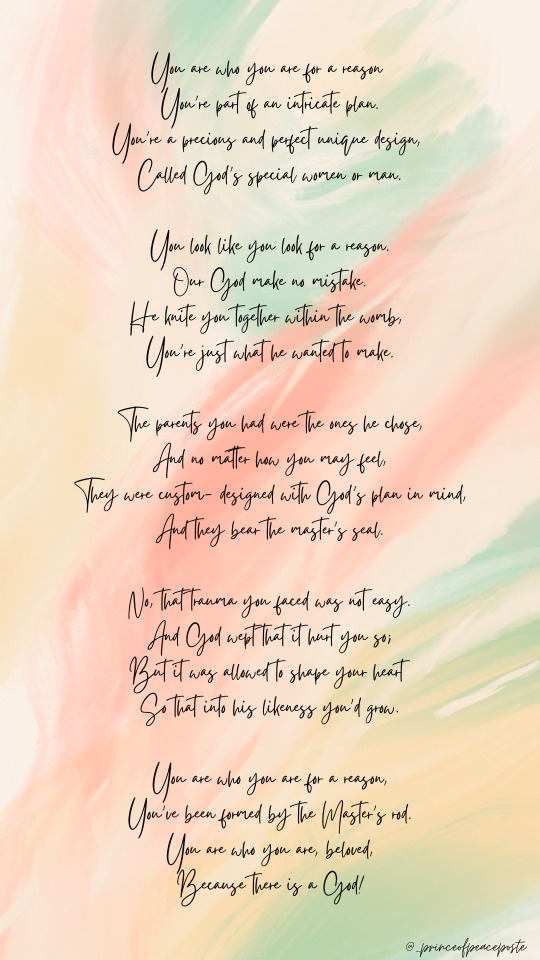 You are who you are for a reason
You're part of an intricate plan.
You're a precious and perfect unique design,
Called God's special women or man.
You look like you look for a reason.
Our God make no mistake.
He knite you together within the womb,
You're just what he wanted to make.
The parents you had were the ones he chose,
And no matter how you may feel,
They were custom- designed with God's plan in mind,
And they bear the master's seal.
No, that trauma you faced was not easy.
And God wept that it hurt you so;
But it was allowed to shape your heart
So that into his likeness you'd grow.
You are who you are for a reason,
You've been formed by the Master's rod.
You are who you are, beloved,
Because there is a God!
@_princeofpeaceposte